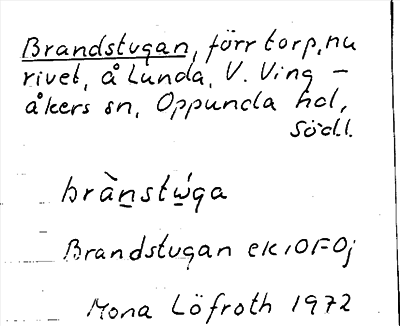 Brandstugan, förr torp, nu
rivet, å Lunda, V. Ving-
åkers sn, Oppunda hd,
Södl.
brànstẃga
Brandstugan ek, OFOj
Mona Löfroth 1972